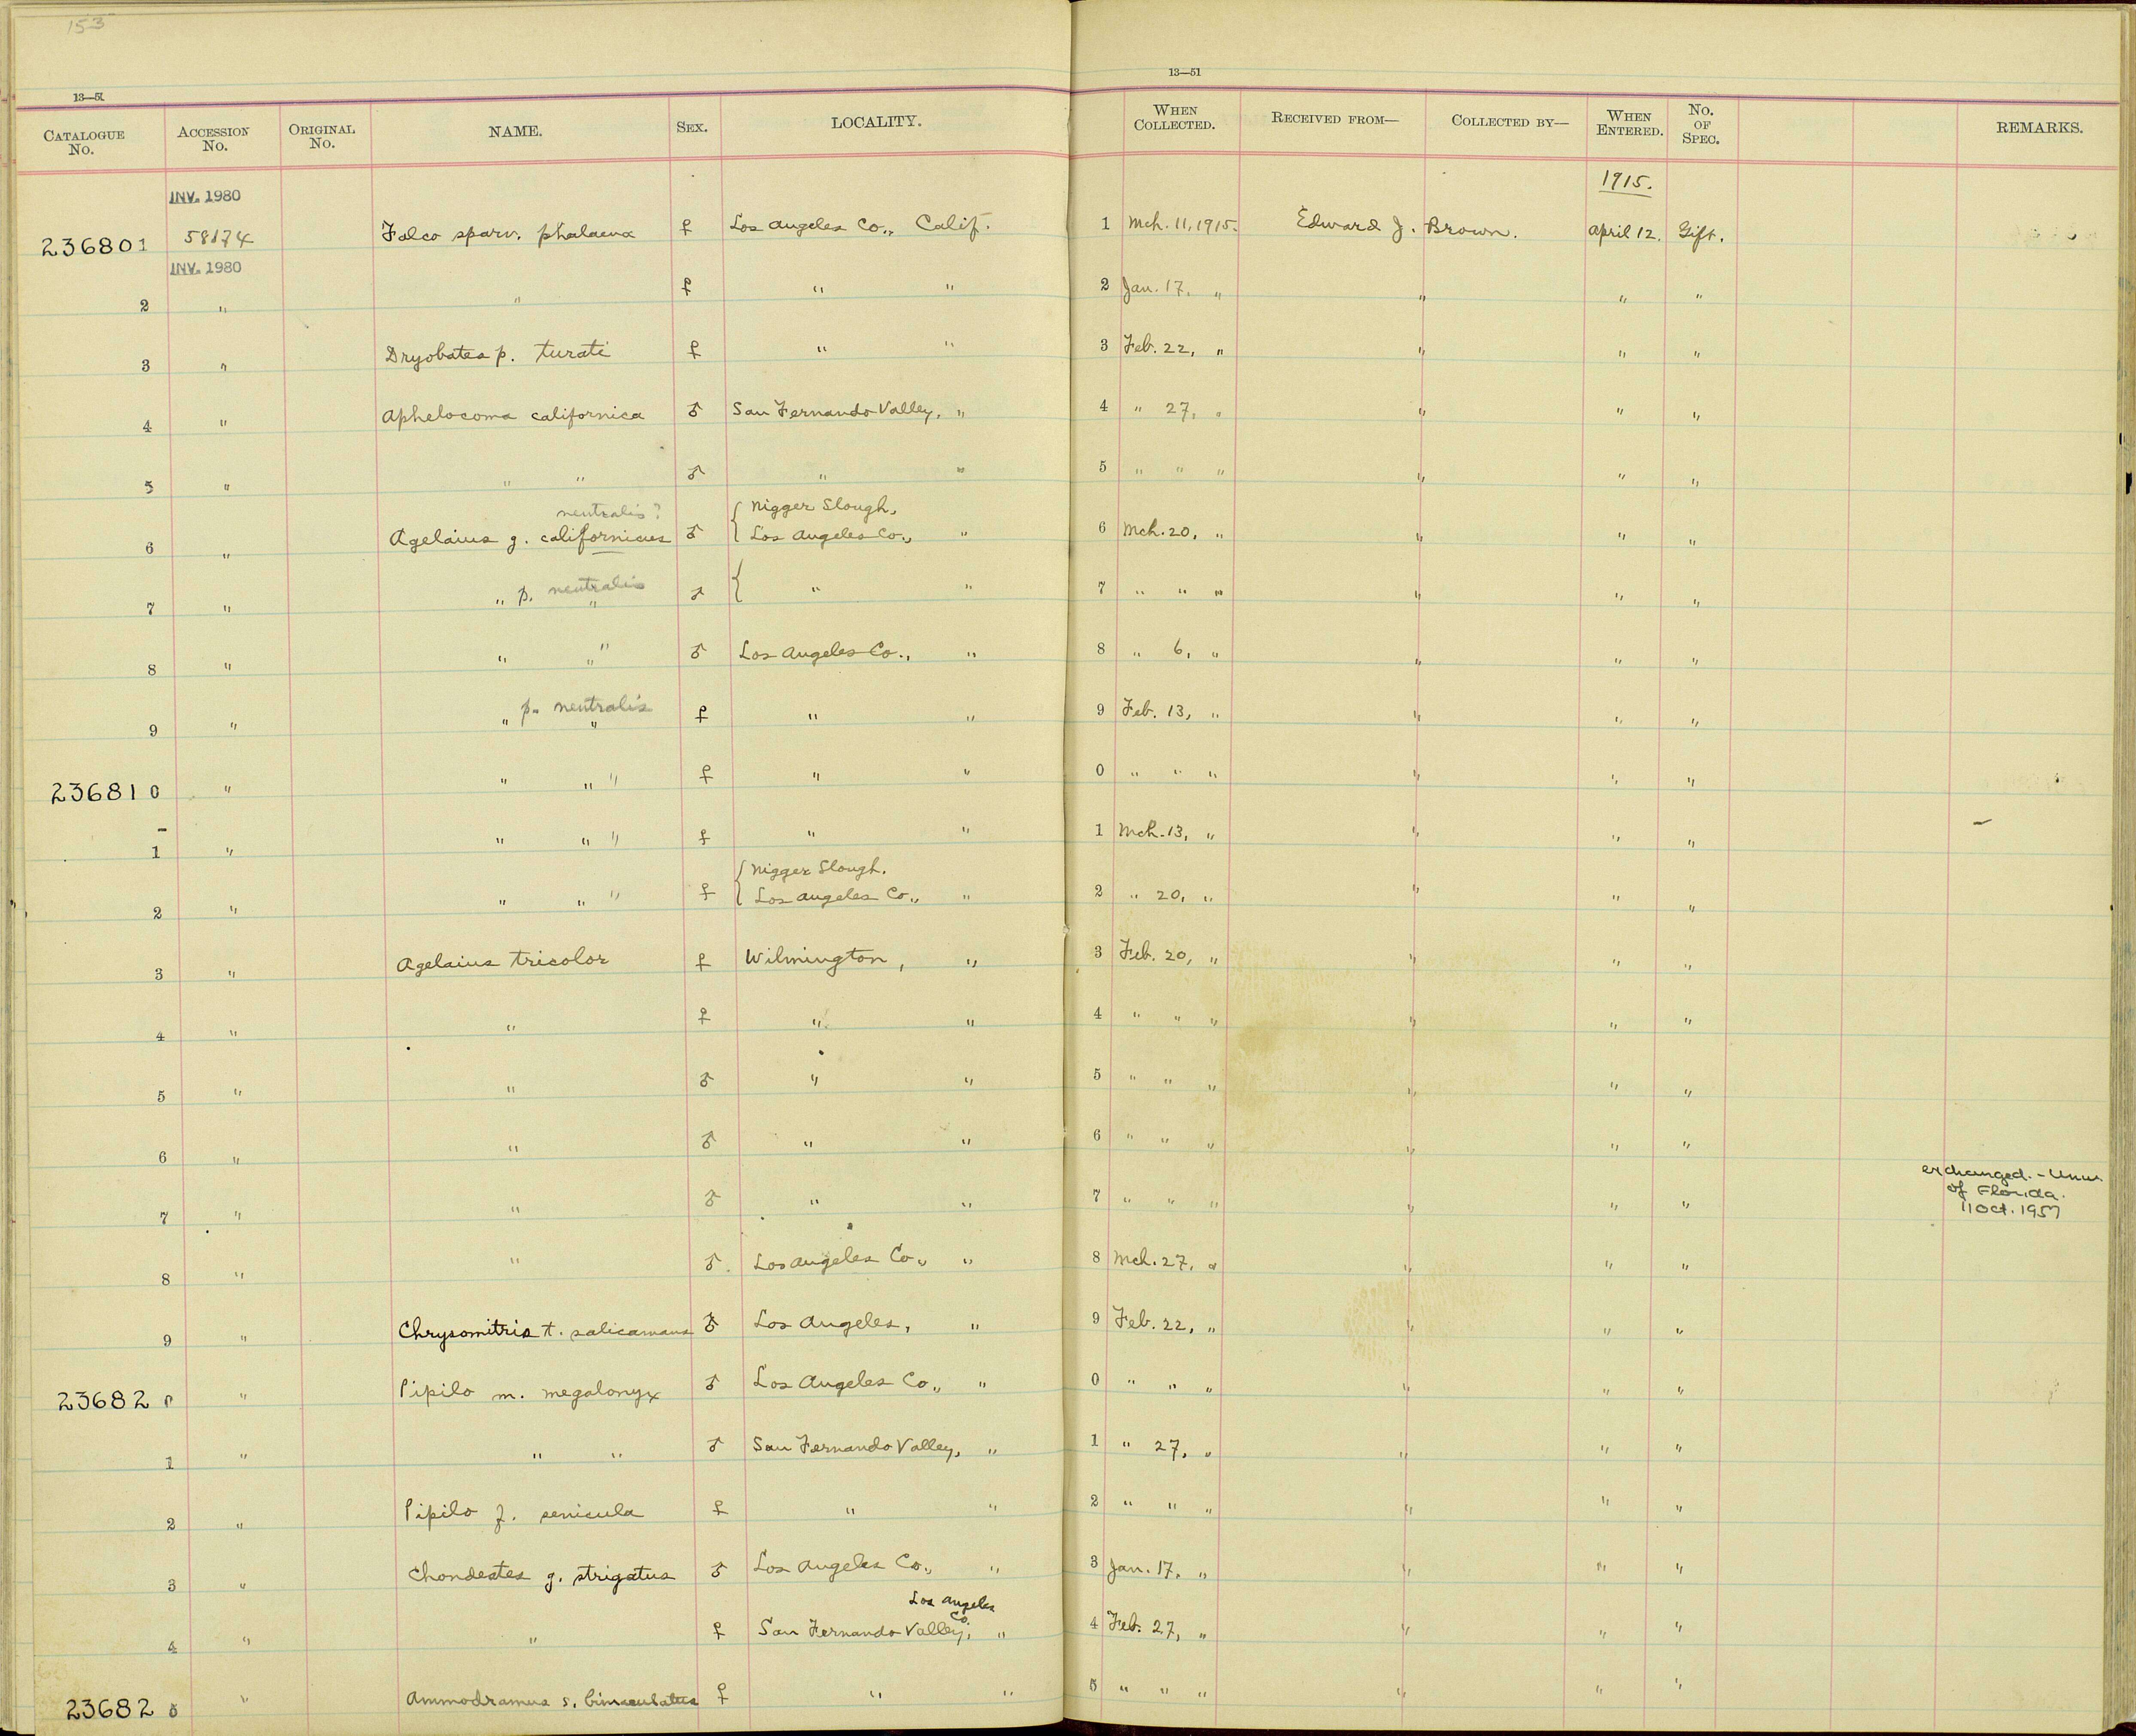 153
13—51
13—51
CATALOGUE No. ACCESSION No. ORIGINAL No. NAME. SEX. LOCALITY. WHEN COLLECTED. RECEIVED FROM— COLLECTED BY— WHEN ENTERED. No. OF SPEC. REMARKS.
INV. 1980 1915.
236801 58174 Falco sparv. phalaena ♀ Los Angeles Co., Calif. 1 Mch. 11, 1915. Edward J. Brown. April 12. Gift.
INV. 1980
2 " " ♀ " " 2 Jan. 17, " " " "
3 " Dryobates p. turati ♀ " " 3 Feb. 22, " " " "
4 " Aphelocoma californica ♂ San Fernando Valley, " 4 " 27, " " " "
5 " " " ♂ " " 5 " " " " " "
neutralis? { Nigger Slough,
6 " Agelaius g. californicus ♂ { Los Angeles Co., " 6 Mch. 20, " " " "
p. neutralis
7 " " " ♂ { " " 7 " " " " " "
8 " " " " ♂ Los Angeles Co., " 8 " 6, " " " "
p. neutralis
9 " " " ♀ " " 9 Feb. 13, " " " "
236810 " " " " ♀ " " 0 " " " " " "
1 " " " " ♀ " " 1 Mch. 13, " " " "
{ Nigger Slough.
2 " " " " ♀ { Los Angeles Co., " 2 " 20, " " " "
3 " Agelaius tricolor ♀ Wilmington, " 3 Feb. 20, " " " "
4 " " ♀ " " 4 " " " " " "
5 " " ♂ " " 5 " " " " " "
6 " " ♂ " " 6 " " " " " "
7 " " ♂ " " 7 " " " " " " exchanged. - Univ.
of Florida.
11 Oct. 1957
8 " " ♂ Los Angeles Co., " 8 Mch. 27, " " " "
9 " Chrysomitris t. salicamans ♂ Los Angeles, " 9 Feb. 22, " " " "
236820 " Pipilo m. megalonyx ♂ Los Angeles Co., " 0 " " " " " "
1 " " " ♂ San Fernando Valley, " 1 " 27, " " " "
2 " Pipilo f. senicula ♀ " " 2 " " " " " "
3 " Chondestes g. strigatus ♂ Los Angeles Co., " 3 Jan. 17, " " " "
Los Angeles Co.
4 " " ♀ San Fernando Valley, " 4 Feb. 27, " " " "
236825 " Ammodramus s. bimaculatus ♀ " " 5 " " " " " "